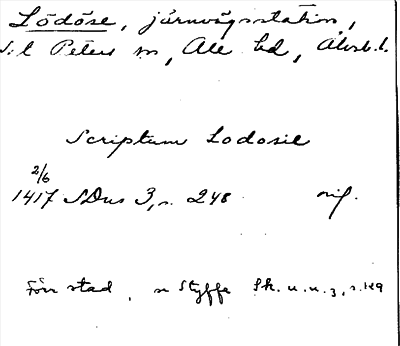 Lödöse, järnvägsstation,
S:t Peters sn, Ale hd, Älvsb. l.
Scriptum Lodosie
2/6
1417 SDns 3, s. 248 orig.
Förr stad, se Styffe Sk. u. u. 3, s. 129